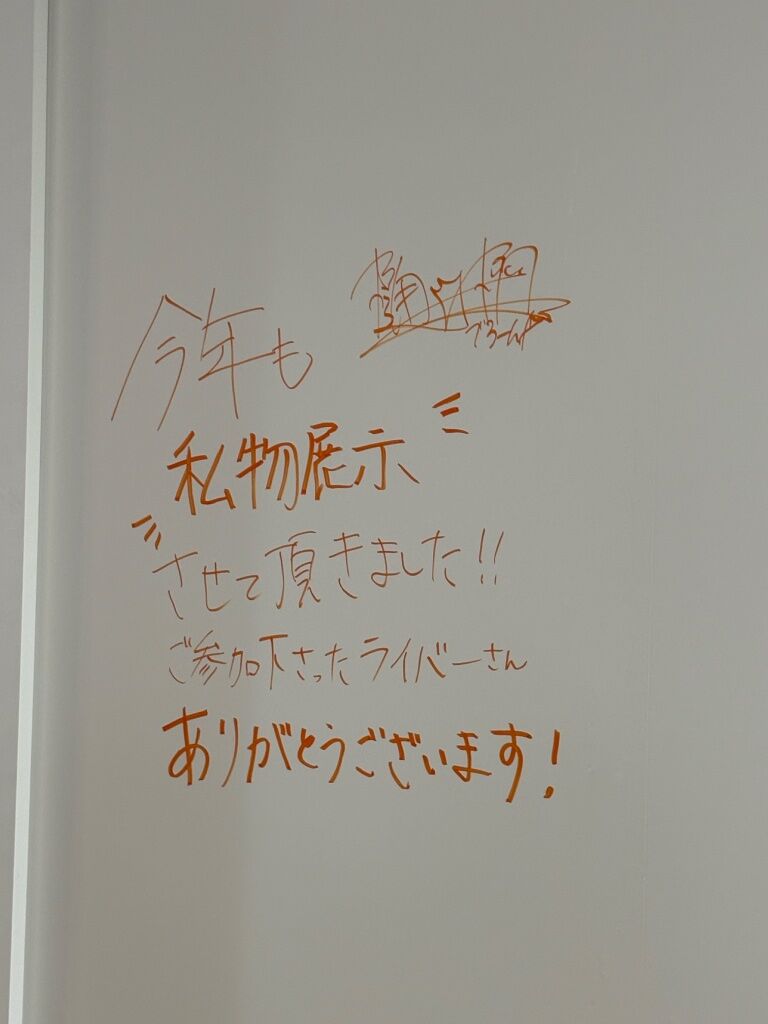 今年も
でろーん
私物展示
させて頂きました!!
ご参加下さったライバーさん
ありがとうございます!